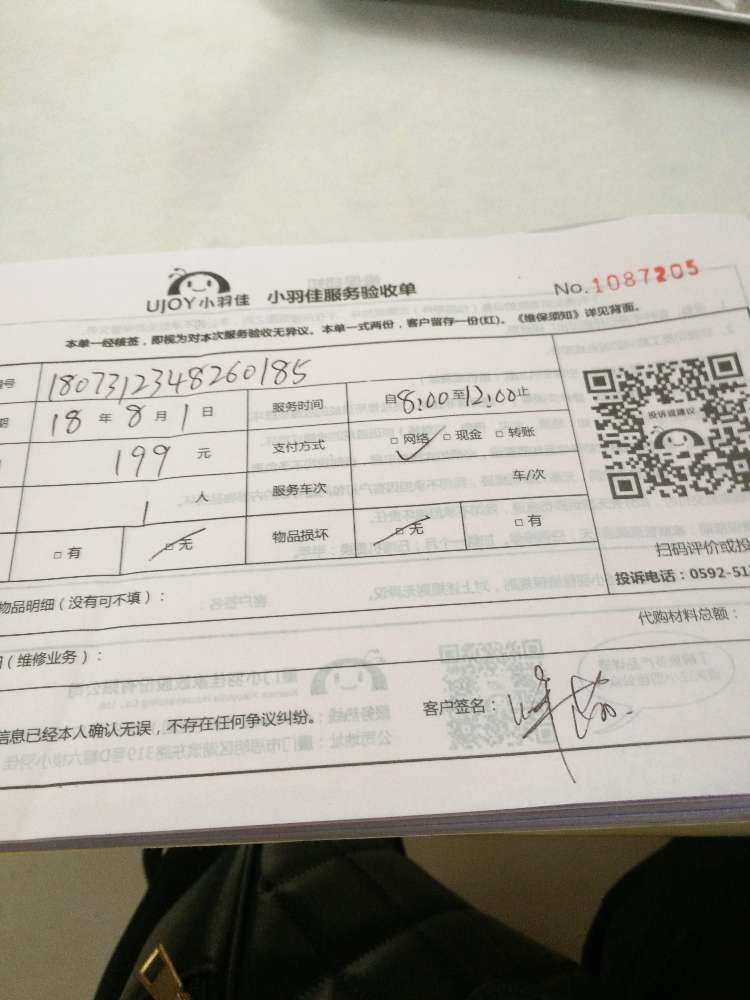 UJOY小羽佳 小羽佳服务验收单 No.1087205
本单一经核签，即视为对本次服务验收无异议。本单一式两份，客户留存一份(红)。《维保须知》详见背面。
号 1807312348260185
期 18年8月1日 服务时间 自8:00至12:00止
199元 支付方式 □网络 □现金 □转账
1人 服务车次 车/次
□有 □无 物品损坏 □无 □有
投诉或建议
扫码评价或投
投诉电话：0592-51
物品明细（没有可不填）：
代购材料总额：
（维修业务）：
信息已经本人确认无误，不存在任何争议纠纷。 客户签名：